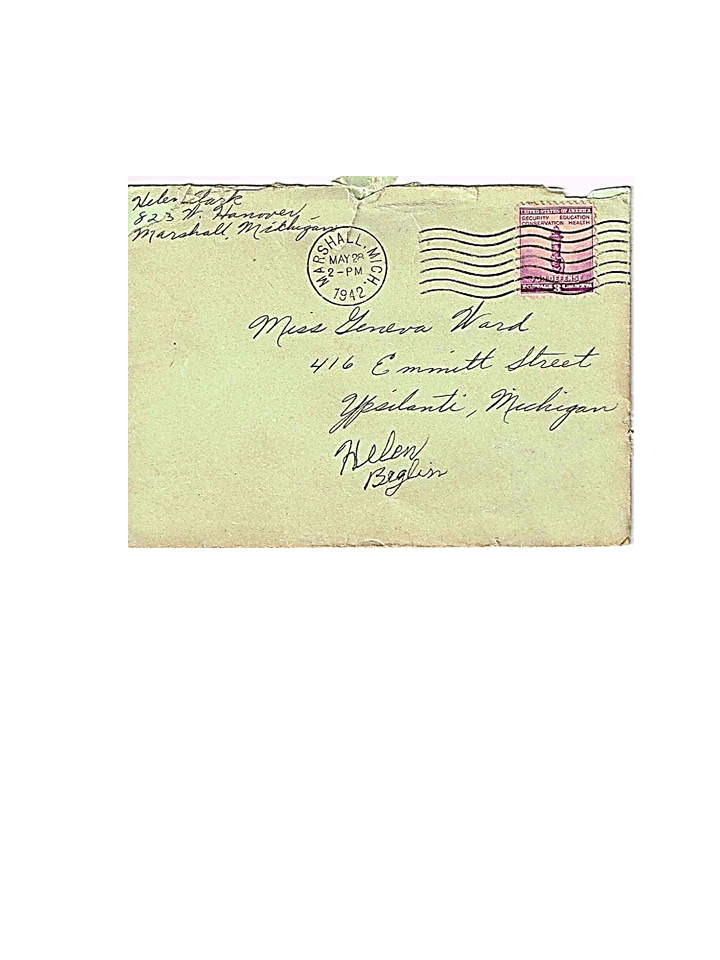 Helen Clark
823 W. Hanover
Marshall, Michigan
MARSHALL, MICH.
MAY 28
2-PM
1942
UNITED STATES OF AMERICA
SECURITY EDUCATION
CONSERVATION HEALTH
FOR DEFENSE
POSTAGE 3 CENTS
Miss Geneva Ward
416 Emmitt Street
Ypsilanti, Michigan
Helen